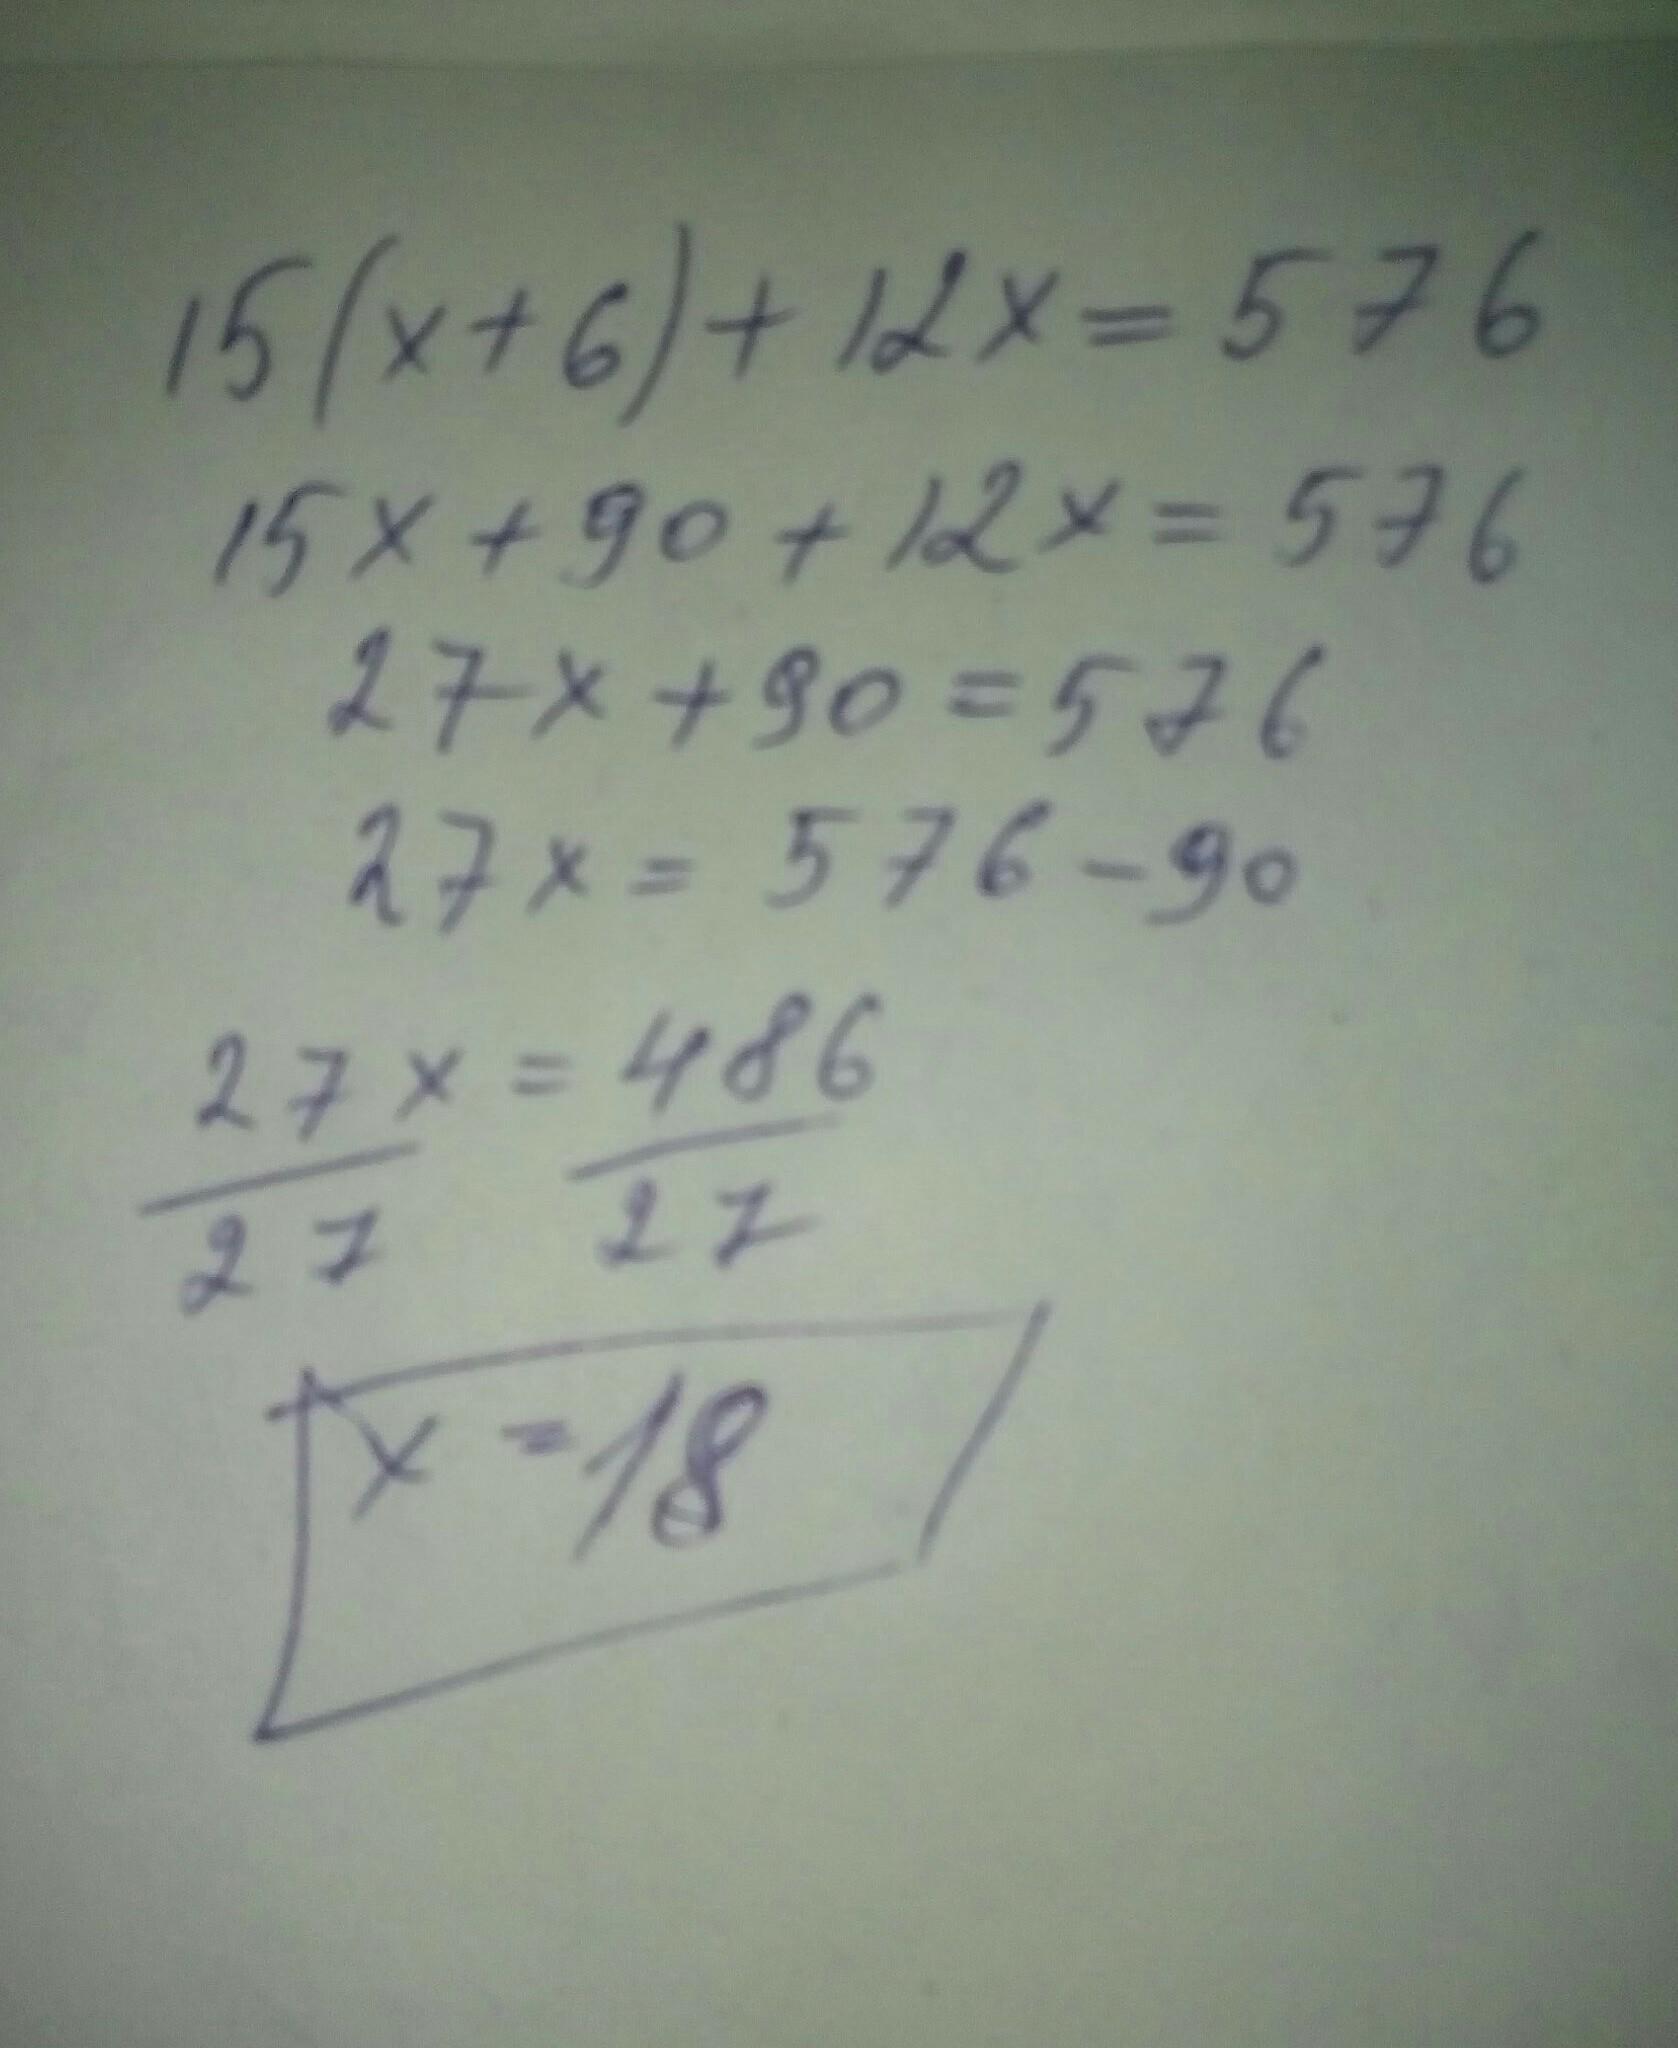 15(x+6)+12x=576
15x+90+12x=576
27x+90=576
27x=576-90
27x=486
27 27
x=18